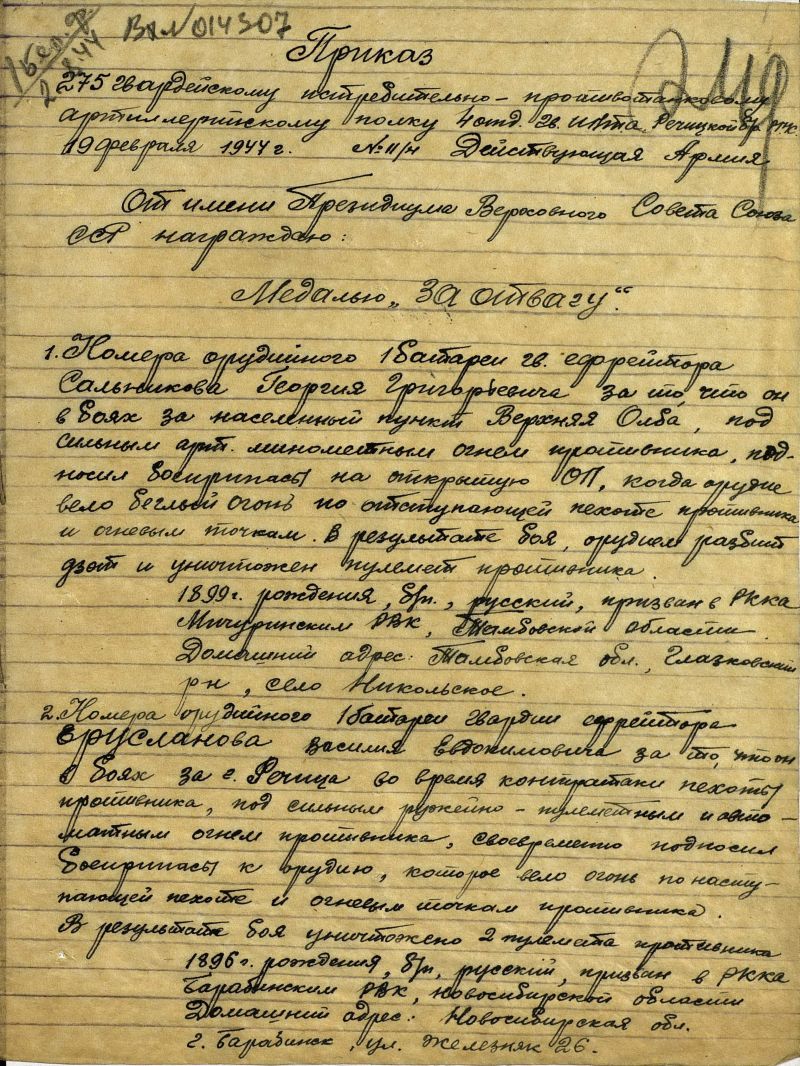 1 Бел. ф.
2.8.44
Вх № 014307
Приказ
275 гвардейскому истребительно-противотанковому
артиллерийскому полку 4 отд. гв. иптa Речицкой бр. РГК.
19 февраля 1944 г. № 11/н Действующая Армия
От имени Президиума Верховного Совета Союза
ССР награждаю:
Медалью „ЗА отвагу".
1. Номера орудийного 1 батареи гв. ефрейтора
Сальникова Георгия Григорьевича за то, что он
в боях за населенный пункт Верхняя Олба, под
сильным арт. минометным огнем противника, под-
носил боеприпасы на открытую ОП, когда орудие
вело беглый огонь по отступающей пехоте противника
и огневым точкам. В результате боя, орудием разбит
дзот и уничтожен пулемет противника.
1899 г. рождения, б/п., русский, призван в РККА
Мичуринским РВК, Тамбовской области
Домашний адрес: Тамбовская обл., Глазковский
р-н, село Никольское.
2. Номера орудийного 1 батареи гвардии ефрейтора
ЕРУСЛАНОВА Василия Евдокимовича за то, что он
в боях за г. Речица во время контратаки пехоты
противника, под сильным ружейно-пулеметным и авто-
матным огнем противника, своевременно подносил
боеприпасы к орудию, которое вело огонь по насту-
пающей пехоте и огневым точкам противника.
В результате боя уничтожено 2 пулемета противника
1896 г. рождения, б/п, русский, призван в РККА
Барабинским РВК, Новосибирской области
Домашний адрес: Новосибирская обл.
г. Барабинск, ул. Железняк 26.